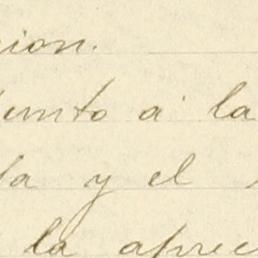 cion.
junto á la
da y el
la aprec